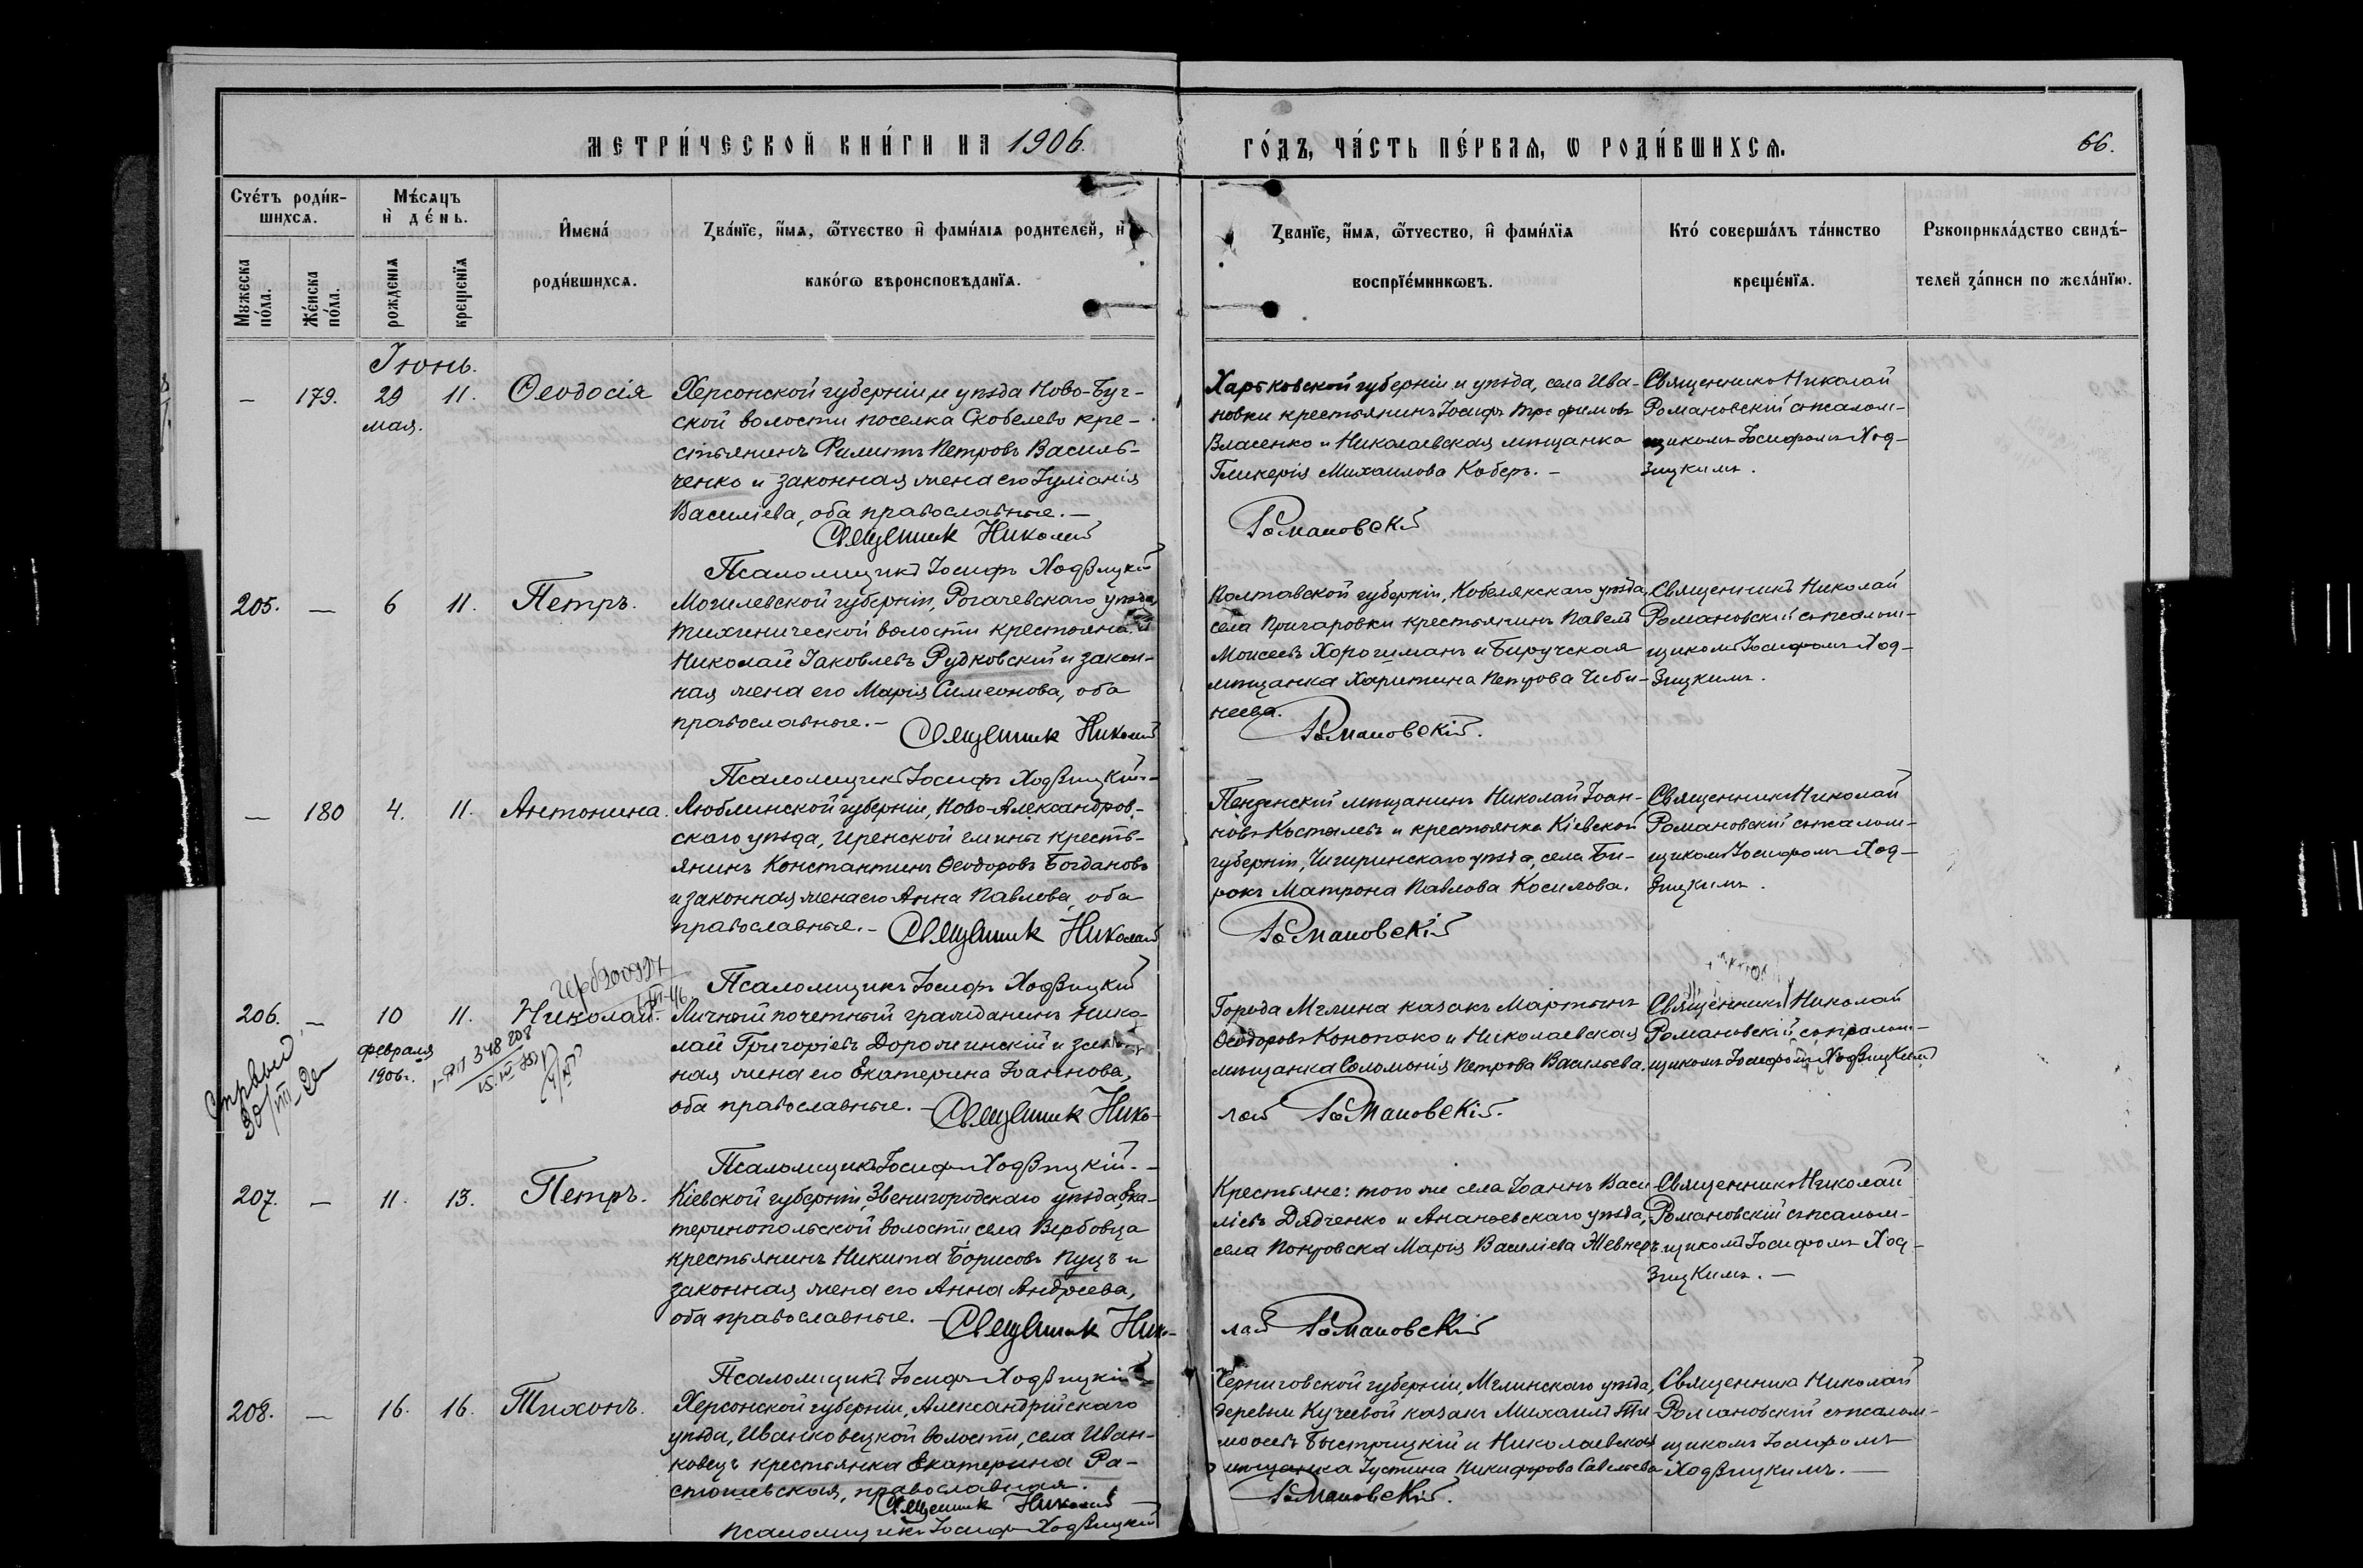 МЕТРИ́ЧЕСКОЙ КНИ́ГИ НА 1906
ГО́ДЪ, ЧА́СТЬ ПЕ́РВАЯ, Ѡ РОДИ́ВШИХСЯ.
66.
Сче́тъ роди́в-
шихся.
Мѣ́сяцъ
и де́нь.
Имена́
роди́вшихся.
Зва́нїе, и́мя, ѻ҆́тчество и҆ фами́лїя родителей, и
како́гѡ вѣроисповѣданїя.
Званїе, и́мя, ѻ҆́тчество, и҆ фами́лїя
воспрїе́мникѡвъ.
Кто́ соверша́лъ та́инство
креще́нїя.
Рꙋкоприкла́дство свидѣ́-
телей за́писи по жела́нїю.
Мꙋжеска
по́ла.
Же́нска
по́ла.
рожденїя
крещенїя
Іюнь.
— 179. 29 11. Ѳеодосія
мая.
Херсонской губерніи и уѣзда Ново-Буг-
ской волости поселка Скобелево кре-
стьянинъ Филиппъ Петровъ Василь-
ченко и законная жена его Іуліанія
Василіева, оба православные. —
Священник Николай
Псаломщикъ Іосифъ Ходзицкій
Харьковской губерніи и уѣзда, села Ива-
новки крестьянинъ Іосифъ Трофимовъ
Власенко и Николаевская мѣщанка
Гликерія Михаилова Коберъ. —
Романовскій
Священникъ Николай
Романовскій съ псалом-
щикомъ Іосифомъ Ход-
зицкимъ.
205. — 6 11. Петръ.
Могилевской губерніи, Рогачевскаго уѣзда,
Тихиничской волости крестьянинъ
Николай Іаковлевъ Рудковскій и закон-
ная жена его Марія Симеонова, оба
православные. —
Священник Николай
Псаломщикъ Іосифъ Ходзицкій. —
Полтавской губерніи, Кобелякскаго уѣзда,
села Пригаровки крестьянинъ Павелъ
Моисеевъ Хорошманъ и Бирючская
мѣщанка Харитина Петрова Чеби-
неева.
Романовскій.
Священникъ Николай
Романовскій съ псалом-
щикомъ Іосифомъ Ход-
зицкимъ.
— 180 4. 11. Антонина.
Люблинской губерніи, Ново-Александров-
скаго уѣзда, Иренской гмины кресть-
янинъ Константинъ Ѳеодоровъ Богдановъ
и законная жена его Анна Павлова, оба
православные. — Священник Николай
Псаломщикъ Іосифъ Ходзицкій
Пензенскій мѣщанинъ Николай Іоан-
новъ Костылевъ и крестьянка Кіевской
губерніи, Чигиринскаго уѣзда, села Би-
рокъ Матрона Павлова Косилова.
Романовскій
Священникъ Николай
Романовскій съ псалом-
щикомъ Іосифомъ Ход-
зицкимъ.
206. — 10 11. Николай.
февраля
1906 г.
348 208
Личный почетный гражданинъ Нико-
лай Григоріевъ Дорожинскій и закон-
ная жена его Екатерина Іоаннова,
оба православные. — Священник Нико-
Псаломщикъ Іосифъ Ходзицкій. —
Города Мглина казакъ Мартынъ
Ѳеодоровъ Конопако и Николаевская
мѣщанка Соломонія Петрова Васильева.
лай Романовскій.
Священникъ Николай
Романовскій съ псалом-
щикомъ Іосифомъ Ходзицкимъ
207. — 11. 13. Петръ.
Кіевской губерніи, Звенигородскаго уѣзда, Ека-
теринопольской волости села Вербовца
крестьянинъ Никита Борисовъ Пуцъ и
законная жена его Анна Андреева,
оба православные. — Священник Нико-
Псаломщикъ Іосифъ Ходзицкій
Крестьяне: того же села Іоаннъ Васи-
ліевъ Дядченко и Ананьевскаго уѣзда,
села Покровска Марія Василіева Жевнеръ
лай Романовскій
Священникъ Николай
Романовскій съ псалом-
щикомъ Іосифомъ Ход-
зицкимъ. —
208. — 16. 16. Тихонъ.
Херсонской губерніи, Александрійскаго
уѣзда, Иванковецкой волости, села Иван-
ковецъ крестьянка Екатерина Ра-
стошевская, православная.
Священник Николай
Псаломщикъ Іосифъ Ходзицкій
Черниговской губерніи, Мглинскаго уѣзда,
деревни Кучеевой казакъ Михаилъ Ти-
моѳеевъ Быстрицкій и Николаевская
мѣщанка Іустина Никифорова Савельева
Романовскій.
Священника Николай
Романовскій съ псалом-
щикомъ Іосифомъ
Ходзицкимъ. —